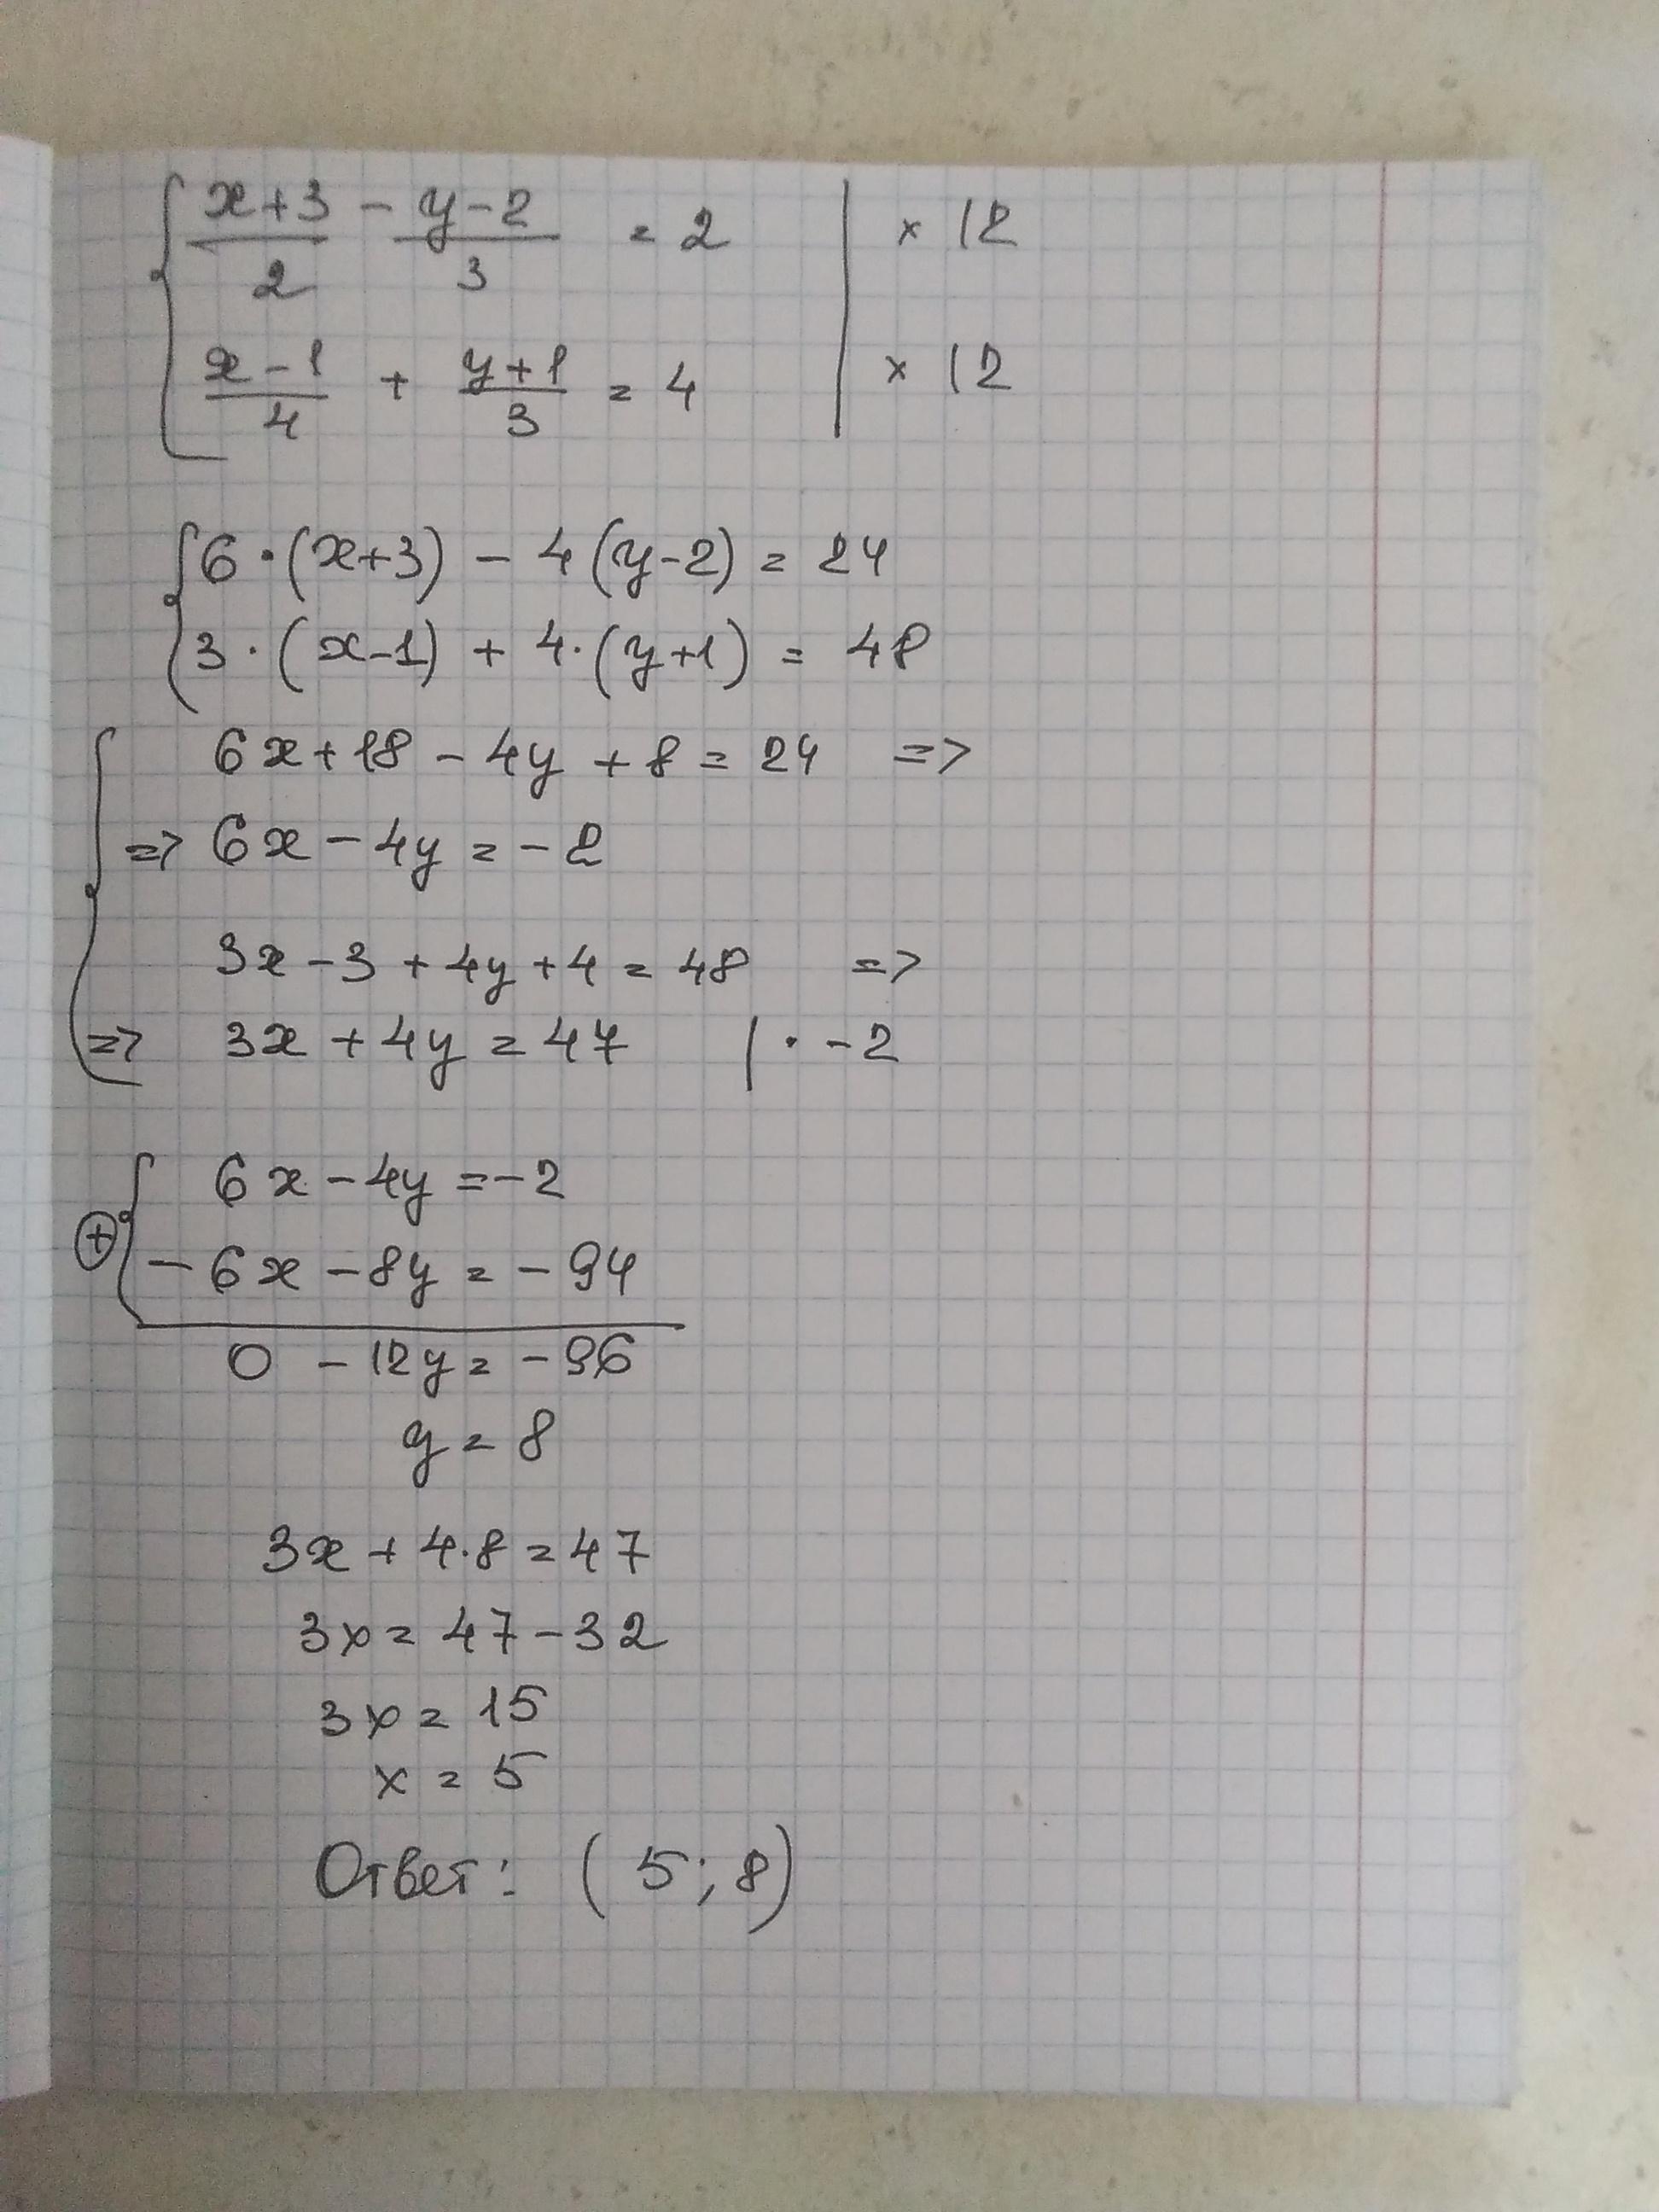 { (x+3)/2 - (y-2)/3 = 2 | × 12
(x-1)/4 + (y+1)/3 = 4 | × 12
{ 6·(x+3) - 4(y-2) = 24
3·(x-1) + 4·(y+1) = 48
{ 6x+18-4y+8=24 =>
=> 6x-4y=-2
3x-3+4y+4=48 =>
=> 3x+4y=47 | · -2
⊕ { 6x-4y=-2
-6x-8y=-94
0 -12y=-96
y=8
3x+4·8=47
3x=47-32
3x=15
x=5
Ответ: (5;8)